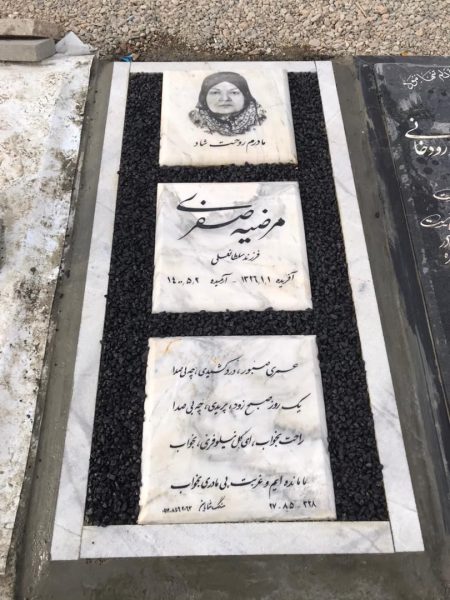 مادرم روحت شاد
مرضیه صفری
فرزند سلطانعلی
آفریده ۱۳۲۶.۱.۱ - آرمیده ۱۴۰۰.۵.۲
عمری صبور، درد کشیدی، چه بی صدا
یک روز صبح زود، پریدی، چه بی صدا
راحت بخواب، ای گل نیلوفری، بخواب
ما مانده ایم و غربت بی مادری بخواب
۹۷ - ۸۵ - ۲۲۸
رودخانی